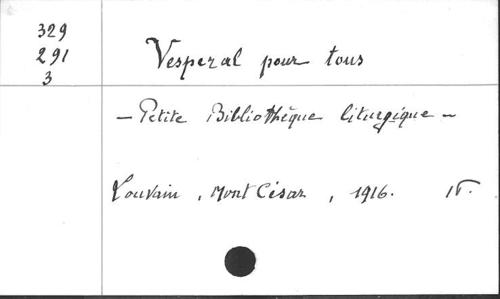 329
291
3
Vesperal pour tous
— Petite Bibliothèque liturgique —
Louvain, Mont César, 1916.